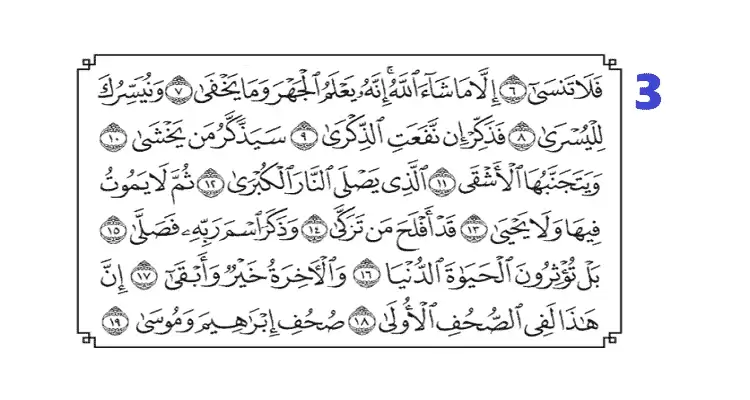 فَلَا تَنسَىٰٓ ٦ إِلَّا مَا شَآءَ ٱللَّهُۚ إِنَّهُۥ يَعْلَمُ ٱلْجَهْرَ وَمَا يَخْفَىٰ ٧ وَنُيَسِّرُكَ
لِلْيُسْرَىٰ ٨ فَذَكِّرْ إِن نَّفَعَتِ ٱلذِّكْرَىٰ ٩ سَيَذَّكَّرُ مَن يَخْشَىٰ ١٠
وَيَتَجَنَّبُهَا ٱلْأَشْقَى ١١ ٱلَّذِى يَصْلَى ٱلنَّارَ ٱلْكُبْرَىٰ ١٢ ثُمَّ لَا يَمُوتُ
فِيهَا وَلَا يَحْيَىٰ ١٣ قَدْ أَفْلَحَ مَن تَزَكَّىٰ ١٤ وَذَكَرَ ٱسْمَ رَبِّهِۦ فَصَلَّىٰ ١٥
بَلْ تُؤْثِرُونَ ٱلْحَيَوٰةَ ٱلدُّنْيَا ١٦ وَٱلْأَخِرَةُ خَيْرٌ وَأَبْقَىٰٓ ١٧ إِنَّ
هَٰذَا لَفِى ٱلصُّحُفِ ٱلْأُولَىٰ ١٨ صُحُفِ إِبْرَٰهِيمَ وَمُوسَىٰ ١٩
3